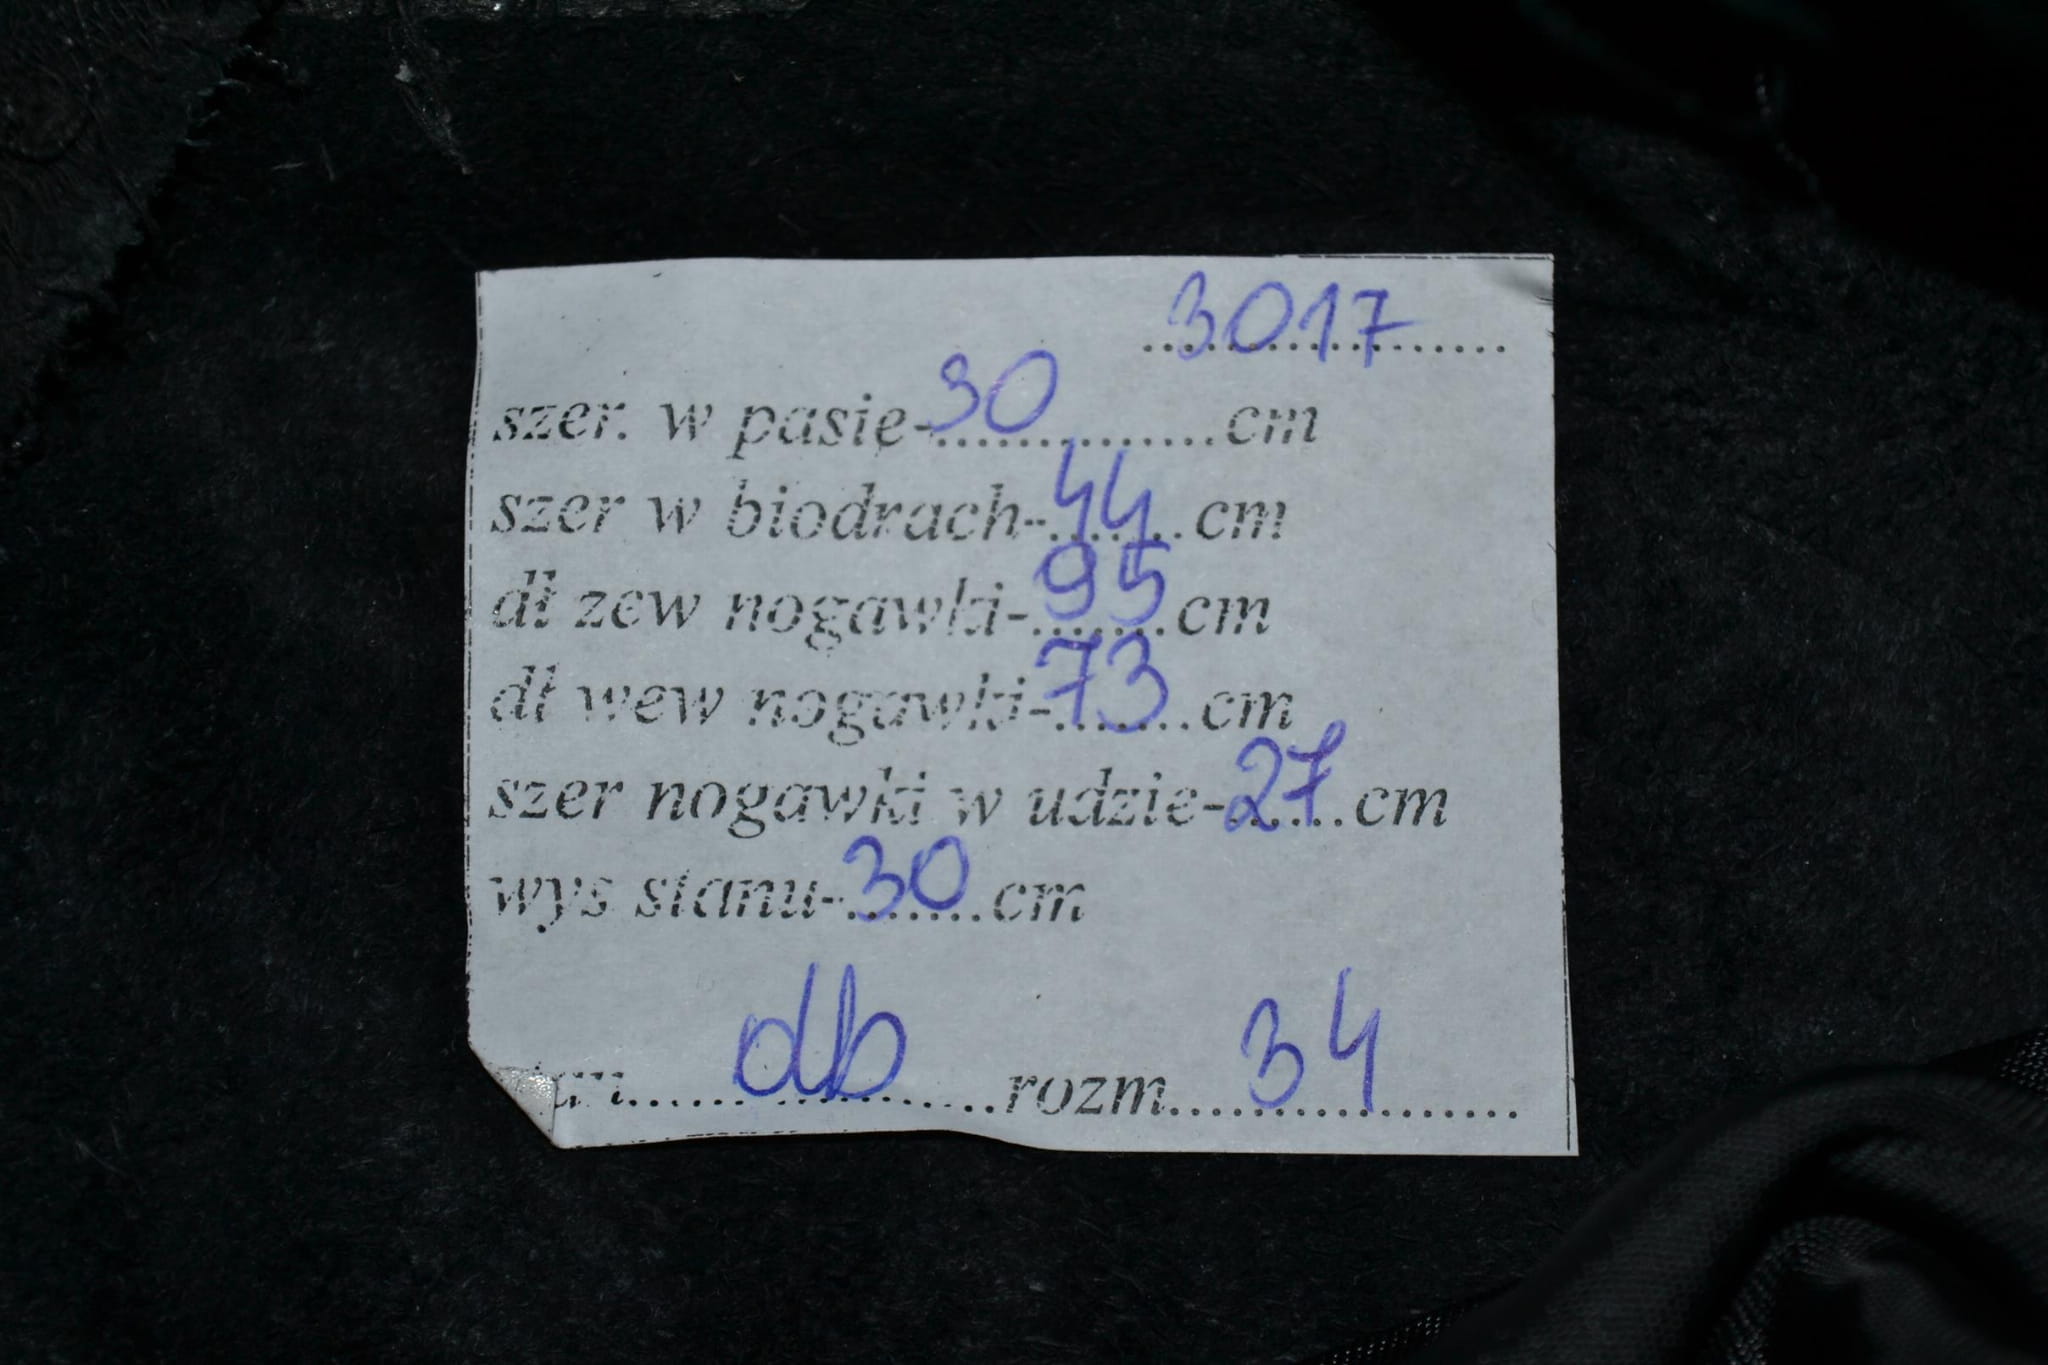 3017
szer. w pasie-30..............cm
szer w biodrach-44.......cm
dł zew nogawki-95.......cm
dł wew nogawki-73.......cm
szer nogawki w udzie-27......cm
wys stanu-30.......cm
db rozm 34